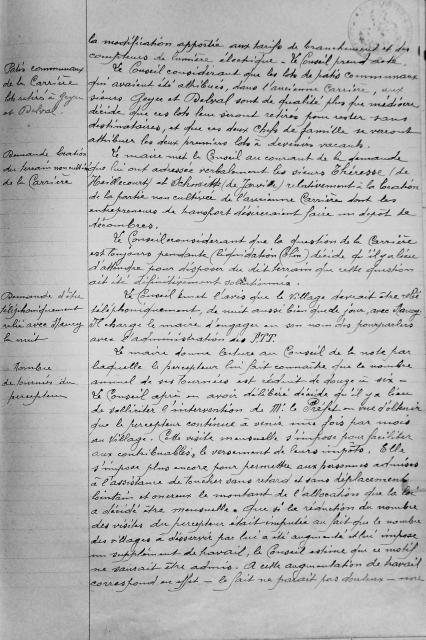 la modification apportée aux tarifs de branchement et des
compteurs de lumière électrique - Le Conseil prend acte.
Patis communaux
de la Carrière
lots retirés à Goyer
et Delval
Le Conseil considérant que les lots de patis communaux
qui avaient été attribués, dans l'ancienne Carrière, aux
sieurs Goyer et Delval sont de qualité plus que médiocre
décide que ces lots leur seront retirés pour rester sans
destinataires, et que ces deux chefs de famille se verront
attribuer les deux premiers lots à devenir vacants.
Demande location
du terrain non cultivé
de la Carrière
Le maire met le Conseil au courant de la demande
que lui ont adressée verbalement les sieurs Théresse (de
) et (de Jarville) relativement à la location
de la partie non cultivée de l'ancienne Carrière dont les
entrepreneurs de transport désireraient faire un dépôt de
décombres.
Le Conseil considérant que la question de la Carrière
est toujours pendante (liquidation Colin) décide qu'il y a lieu
d'attendre pour disposer du dit terrain que cette question
ait été définitivement solutionnée.
Demande d'être
téléphoniquement
relié avec Nancy
la nuit
Le Conseil émet l'avis que le Village devrait être relié
téléphoniquement, de nuit aussi bien que de jour, avec Nancy.
Il charge le maire d'engager en son nom des pourparlers
avec l'administration des PTT.
Nombre
de tournées du
percepteur
Le maire donne lecture au Conseil de la note par
laquelle le percepteur lui fait connaître que le nombre
annuel de ses tournées est réduit de douze à six.
Le Conseil après en avoir délibéré décide qu'il y a lieu
de solliciter l'intervention de M. le Préfet en vue d'obtenir
que le percepteur continue à venir une fois par mois
au Village. Cette visite mensuelle s'impose pour faciliter
aux contribuables, le versement de leurs impôts. Elle
s'impose plus encore pour permettre aux personnes admises
à l'assistance de toucher sans retard et sans déplacement
lointain et onéreux le montant de l'allocation que la loi
a décidé être mensuelle. Que si la réduction du nombre
des visites du percepteur était imputée au fait que le nombre
des villages à desservir par lui a été augmenté et lui impose
un supplément de travail, le Conseil estime que ce motif
ne saurait être admis. A cette augmentation de travail
correspond en effet - le fait ne paraît pas douteux - une